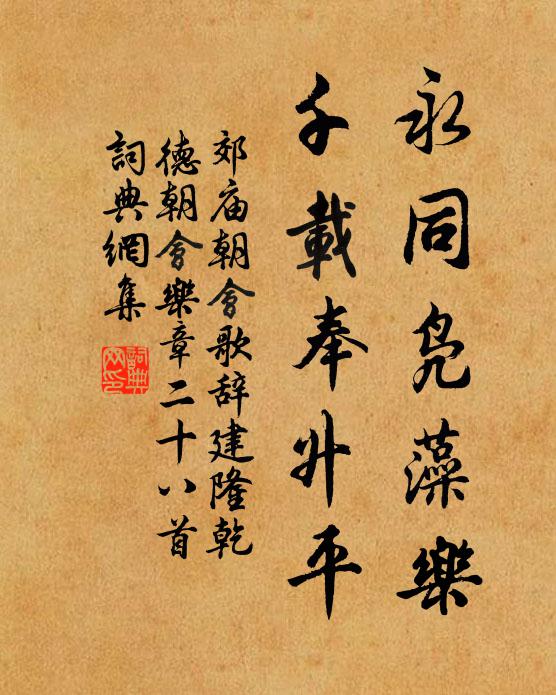 永同凫藻樂
千載奉升平
郊庙朝會歌辞建隆乾
德朝會樂章二十八首
詞典網集
詞典網印